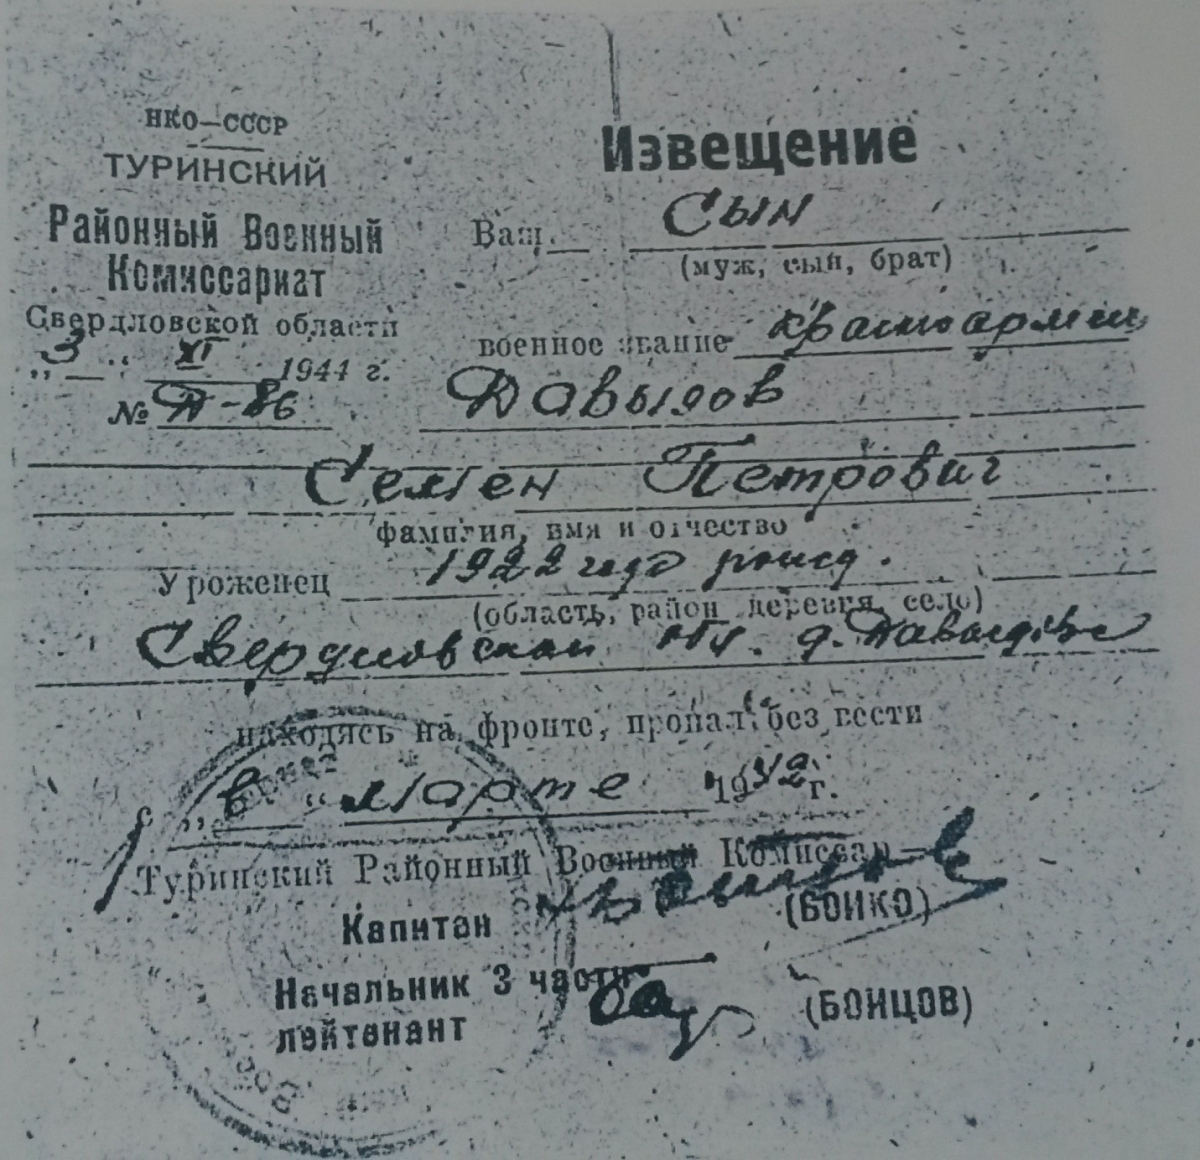 НКО—СССР
ТУРИНСКИЙ
Районный Военный
Комиссариат
Свердловской области
„3“ XI 1944 г.
№
Извещение
Ваш Сын
(муж, сын, брат)
военное звание красноармеец
Давыдов
Семен Петрович
фамилия, имя и отчество
Уроженец 1922 года рожд.
(область, район, деревня, село)
Свердловской д.
находясь на фронте, пропал без вести
„в“ марте 1942 г.
Туринский Районный Военный Комиссар
Капитан (БОЙКО)
Начальник 3 части
лейтенант (БОЙЦОВ)